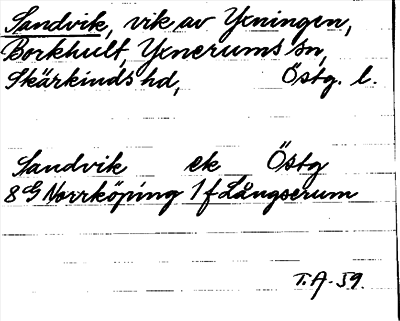 Sandvik, vik av Yxningen,
Borkhult, Yxnerums sn,
Skärkinds hd, Östg. l.
Sandvik ek Östg
8G Norrköping 1f Långserum
T.A. 59.